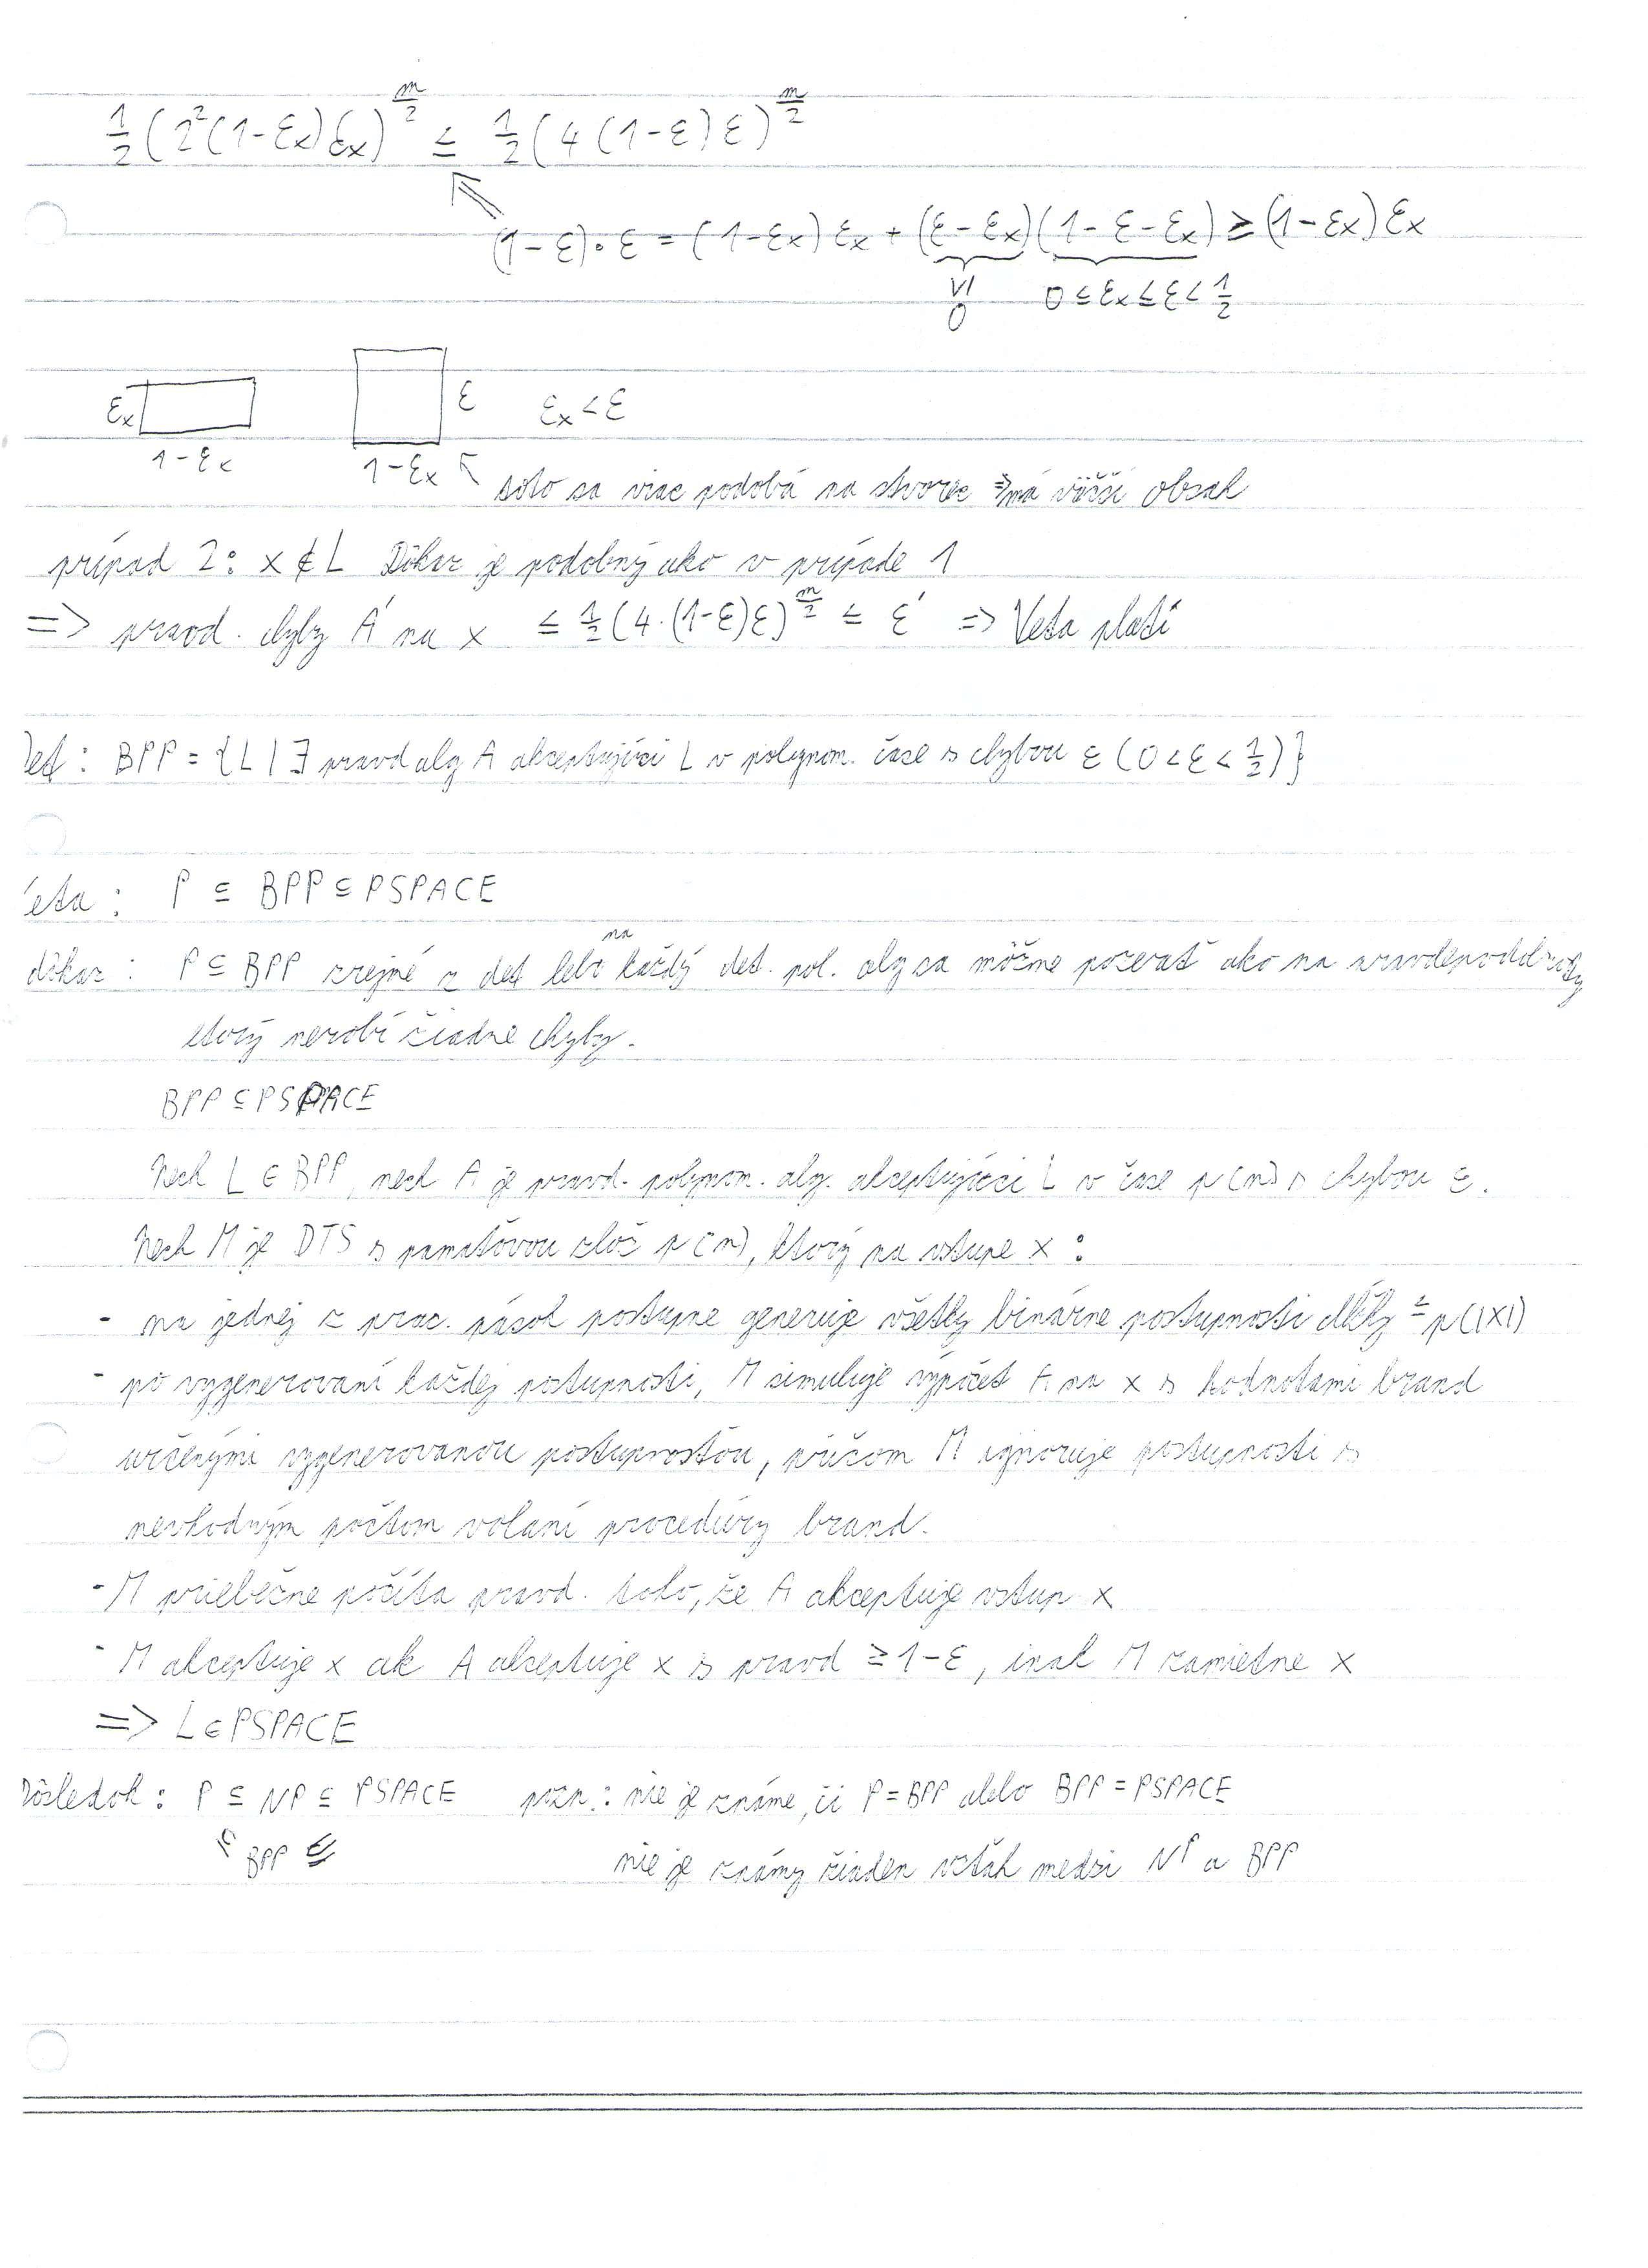 ½(2²(1-εx)εx)^(m/2) ≤ ½(4(1-ε)ε)^(m/2)
(1-ε)·ε = (1-εx)εx + (ε-εx)(1-ε-εx) ≥ (1-εx)εx
≥ 0 0≤εx≤ε<½
εx ε εx<ε
1-εx 1-εx
toto sa viac podobá na štvorec ⇒ má väčší obsah
prípad 2: x∉L Dôkaz je podobný ako v prípade 1
=> pravd. chyby A' na x ≤ ½(4.(1-ε)ε)^(m/2) ≤ ε' => Veta platí
Def: BPP = {L | ∃ pravd alg A akceptujúci L v polynom. čase s chybou ε (0<ε<½)}
eta: P ⊆ BPP ⊆ PSPACE
dôkaz: P ⊆ BPP zrejmé z def lebo na každý det. pol. alg sa môžme pozerať ako na pravdepodobnostný
ktorý nerobí žiadne chyby.
BPP ⊆ PSPACE
Nech L ∈ BPP, nech A je pravd. polynom. alg. akceptujúci L v čase p(n) s chybou ε.
Nech M je DTS s pamäťovou zlož p(n), ktorý na vstupe x:
- na jednej z prac. pások postupne generuje všetky binárne postupnosti dĺžky ≤ p(|x|)
- po vygenerovaní každej postupnosti, M simuluje výpočet A na x s hodnotami brand
určenými vygenerovanou postupnosťou, pričom M ignoruje postupnosti s
nevhodným počtom volaní procedúry brand.
- M priebežne počíta pravd. toho, že A akceptuje vstup x
- M akceptuje x ak A akceptuje x s pravd ≥ 1-ε, inak M zamietne x
=> L∈PSPACE
Dôsledok: P ⊆ NP ⊆ PSPACE pozn.: nie je známe, či P=BPP alebo BPP=PSPACE
⊆ BPP ⊆ nie je známy žiaden vzťah medzi NP a BPP